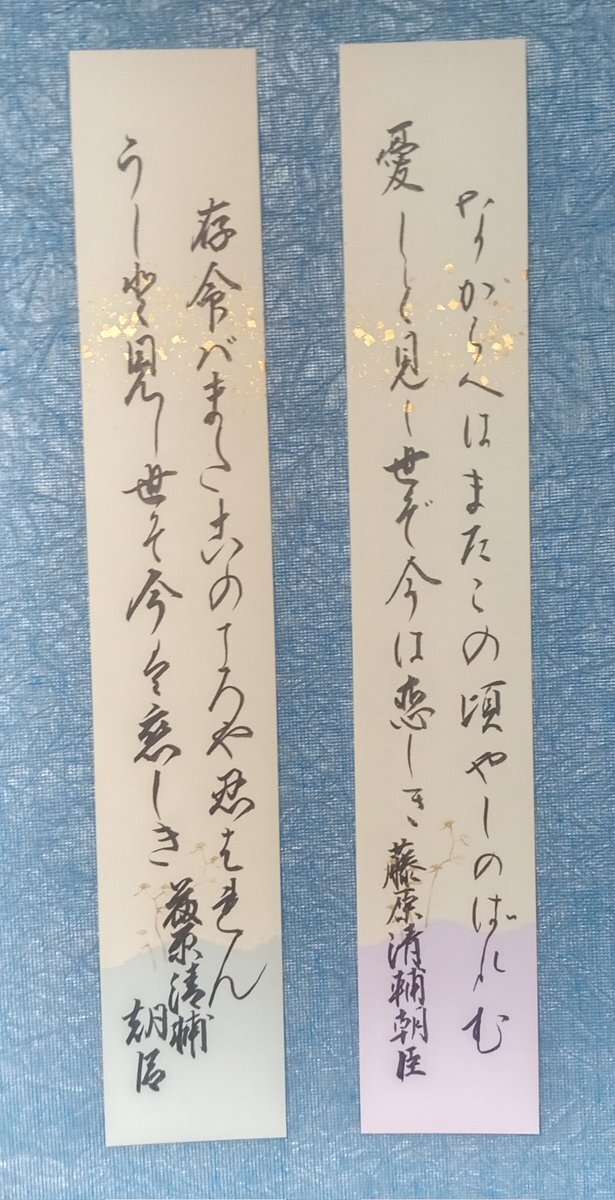 ながらへはまたこの頃やしのばれむ
憂しと見し世ぞ今は恋しき
藤原清輔朝臣
存命バまたこのころや忍はれん
うしと見し世そ今は恋しき
藤原清輔
朝臣